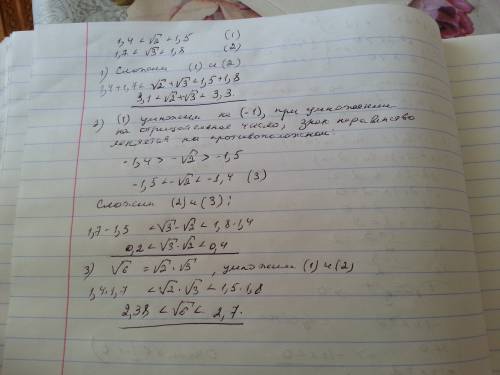 1,4 < √2 < 1,5 (1)
1,7 < √3 < 1,8 (2)
1) Сложим (1) и (2)
1,4+1,7 < √2+√3 < 1,5+1,8
3,1 < √2+√3 < 3,3.
2) (1) умножим на (-1), при умножении
на отрицательное число, знак неравенства
меняется на противоположный:
-1,4 > -√2 > -1,5
-1,5 < -√2 < -1,4 (3)
Сложим (2) и (3):
1,7-1,5 < √3-√2 < 1,8-1,4
0,2 < √3-√2 < 0,4
3) √6 = √2·√3, умножим (1) и (2)
1,4·1,7 < √2·√3 < 1,5·1,8
2,38 < √6 < 2,7.